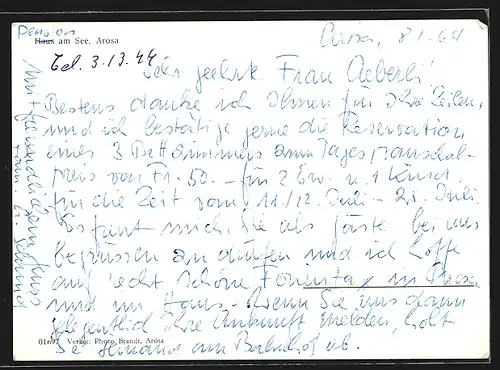 Pension
Haus am See. Arosa
Tel. 3.13.44
Arosa, 8.1.64
Sehr geehrte Frau Aeberli!
Bestens danke ich Ihnen für Ihre Zeilen,
und ich bestätige gerne die Reservation
eines 3 Bettzimmers zum Tagespauschal-
preis von Fr. 50.- für 2 Erw. u. 1 Kind
für die Zeit vom 11./12. Juli - 25. Juli.
Es freut mich, Sie als Gäste bei uns
begrüssen zu dürfen und ich hoffe
auf recht schöne Ferientage in Arosa
und im Haus. Wenn Sie uns dann
gelegentlich Ihre Ankunft melden, holt
Sie jemand am Bahnhof ab.
Mit freundlichem Gruss
01697 Verlag: Photo Brandt, Arosa